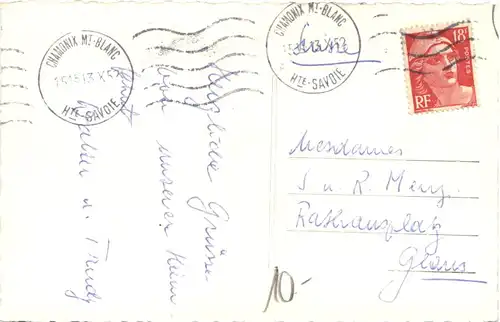 CHAMONIX MT-BLANC
HTE-SAVOIE
CHAMONIX MT-BLANC
HTE-SAVOIE
18F
POSTES
RF
Herzliche Grüsse
von unserer
u. Trudy
Mesdames
J u. R. Menz.
Rathausplatz
Glarus
10.-